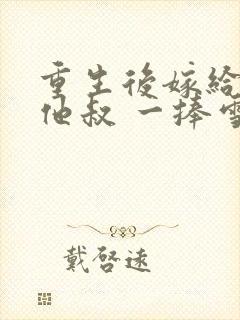 重生後嫁給
他叔 一捧雪
戴啓遠